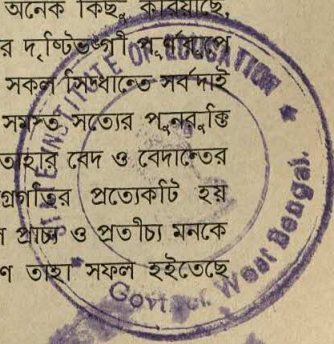 অনেক কিছু করিয়াছে,
র দৃষ্টিভঙ্গী পূর্ণরূপে
সকল সিদ্ধান্তে সর্বদাই
সমস্ত সত্যের পুনরুক্তি
তাহার বেদ ও বেদান্তের
প্রগতির প্রত্যেকটি হয়
প্রাচ্য ও প্রতীচ্য মনকে
ণ তাহা সফল হইতেছে
INSTITUTE OF EDUCATION
Govt. of West Bengal.